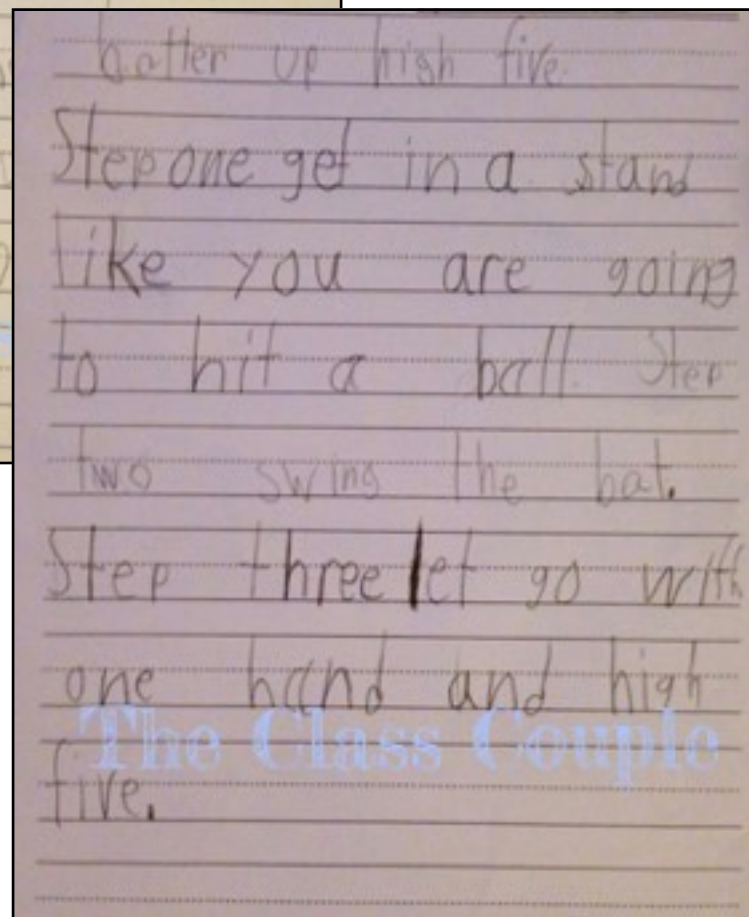 batter up high five.
Step one get in a stand
like you are going
to hit a ball. Step
two swing the bat.
Step three let go with
one hand and high
The Class Couple
five.